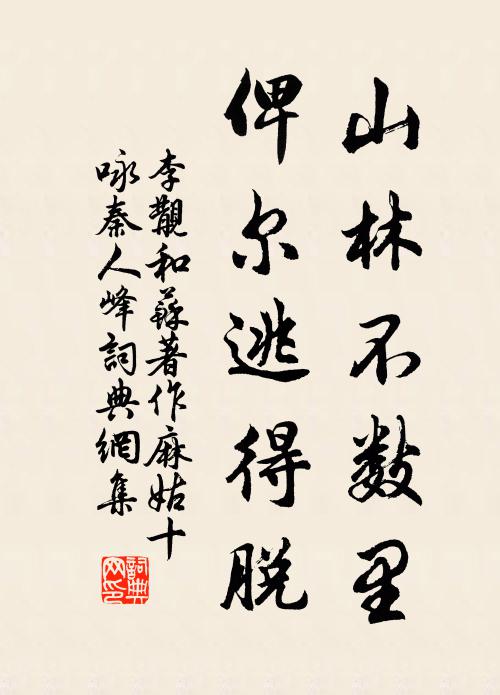 山林不数里
俾尔逃得脱
李觀和蘇著作麻姑十
咏秦人峰詞典網集
詞典网印